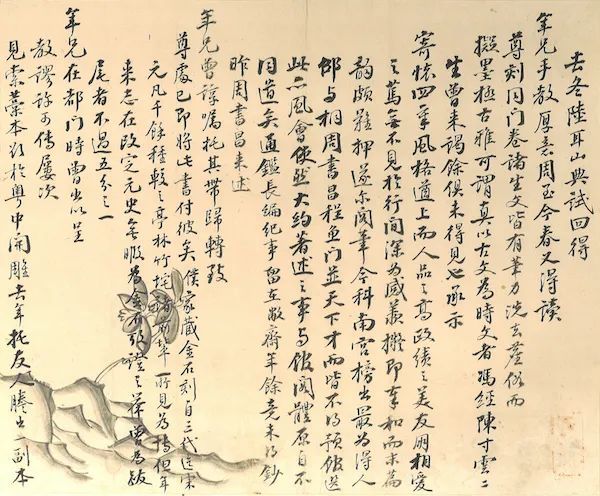 去冬陸耳山典試回得
年兄手教厚意周至今春又得讀
尊刻同門卷諸生文皆有筆力洗去塵俗而
擬墨極古雅可謂真以古文為時文者馮經陳寸雲二
生曾來謁餘俱未得見也承示
寄懷四章風格遒上而人品之高政績之美友朋相愛
之篤無不見於行間深為感羨擬即奉和而末篇
韵頗難押遂爾閣筆今科南宮榜出最為得人
邵与桐周書昌程魚門並天下才而皆不得預館選
此亦風會使然大約著述之事与館閣體原自不
同道矣通鑑長編紀事留在敝齋年餘竟未得鈔
昨周書昌来述
年兄曾諄囑托其帶歸轉致
尊處已即將此書付彼矣僕家藏金石刻自三代迄宋
元凡千餘種較之亭林竹垞諸前輩所見為博但年
来志在改定元史無暇為金石攷證之舉曾為跋
尾者不過五分之一
年兄在都門時曾出以呈
教謬許可傳屢次
見索藁本欲於粤中開雕去年托友人謄出一副本